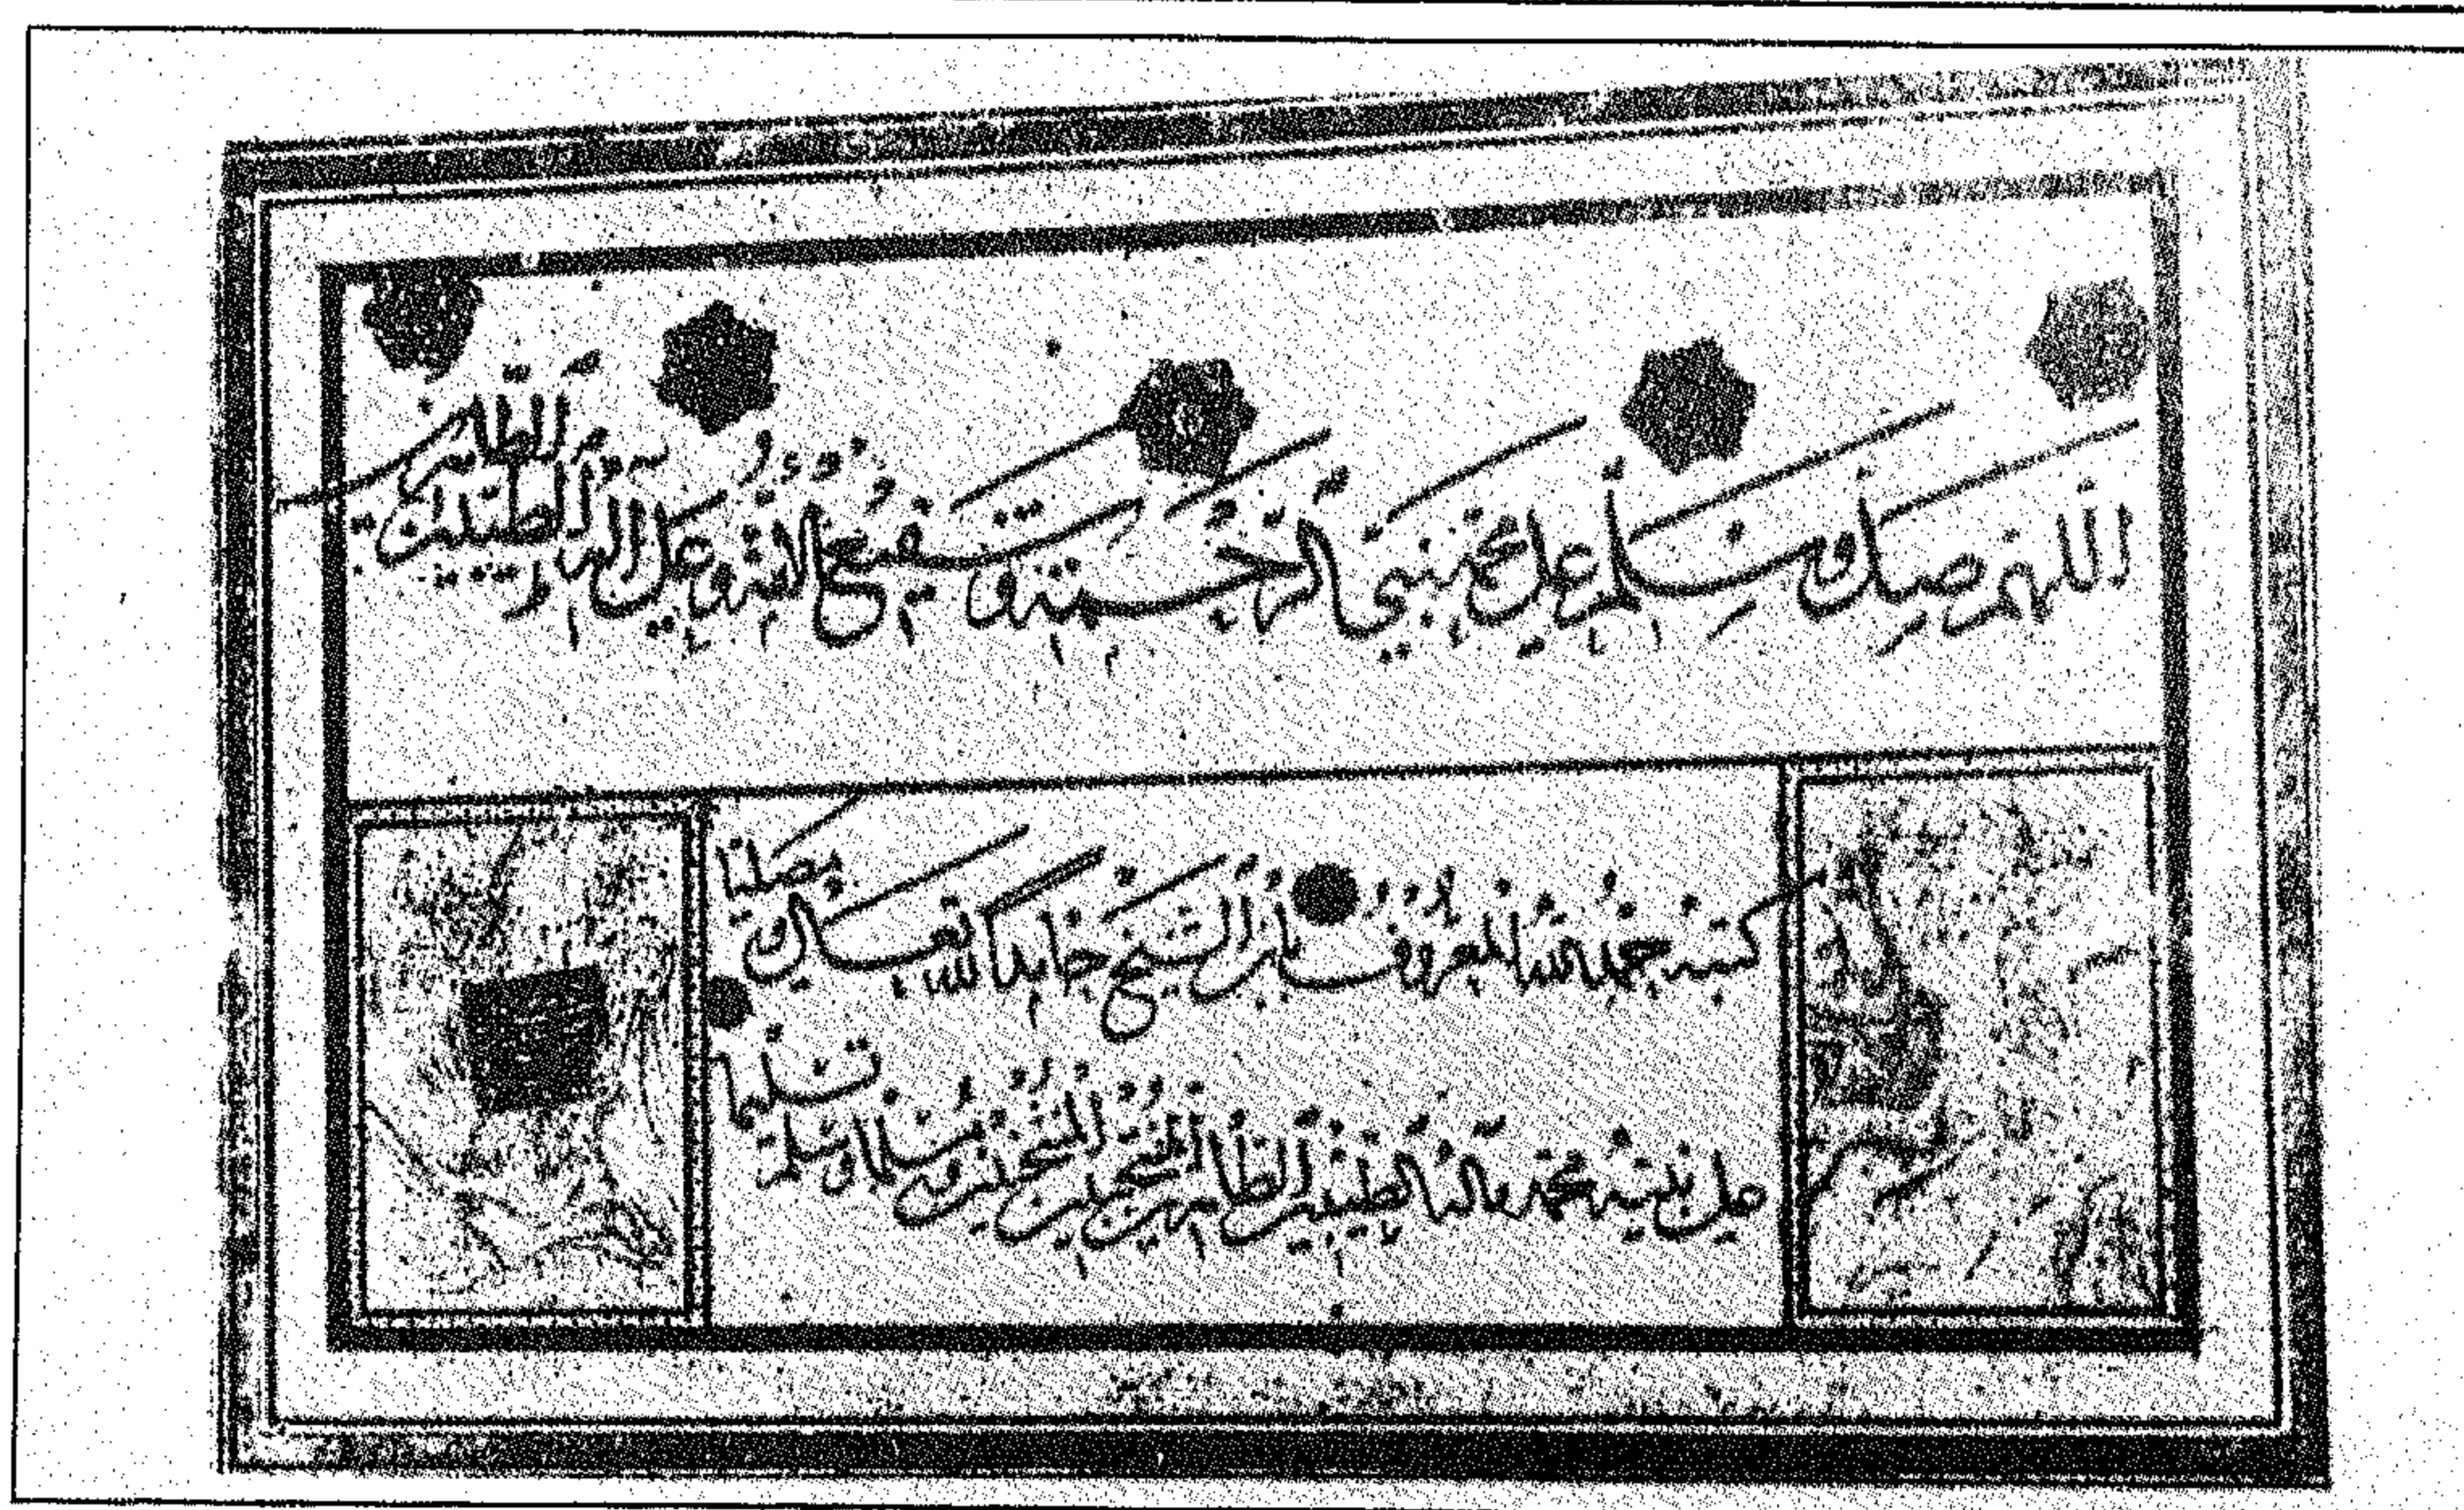 اللهم صل وسلم على محمد نبي الرحمة وشفيع الأمة وعلى آله الطيبين الطاهرين
كتبه حمد الله المعروف بابن الشيخ حامدا لله تعالى ومصليا
على نبيه محمد وآله الطيبين الطاهرين المنتجبين ومسلما وسلم تسليما